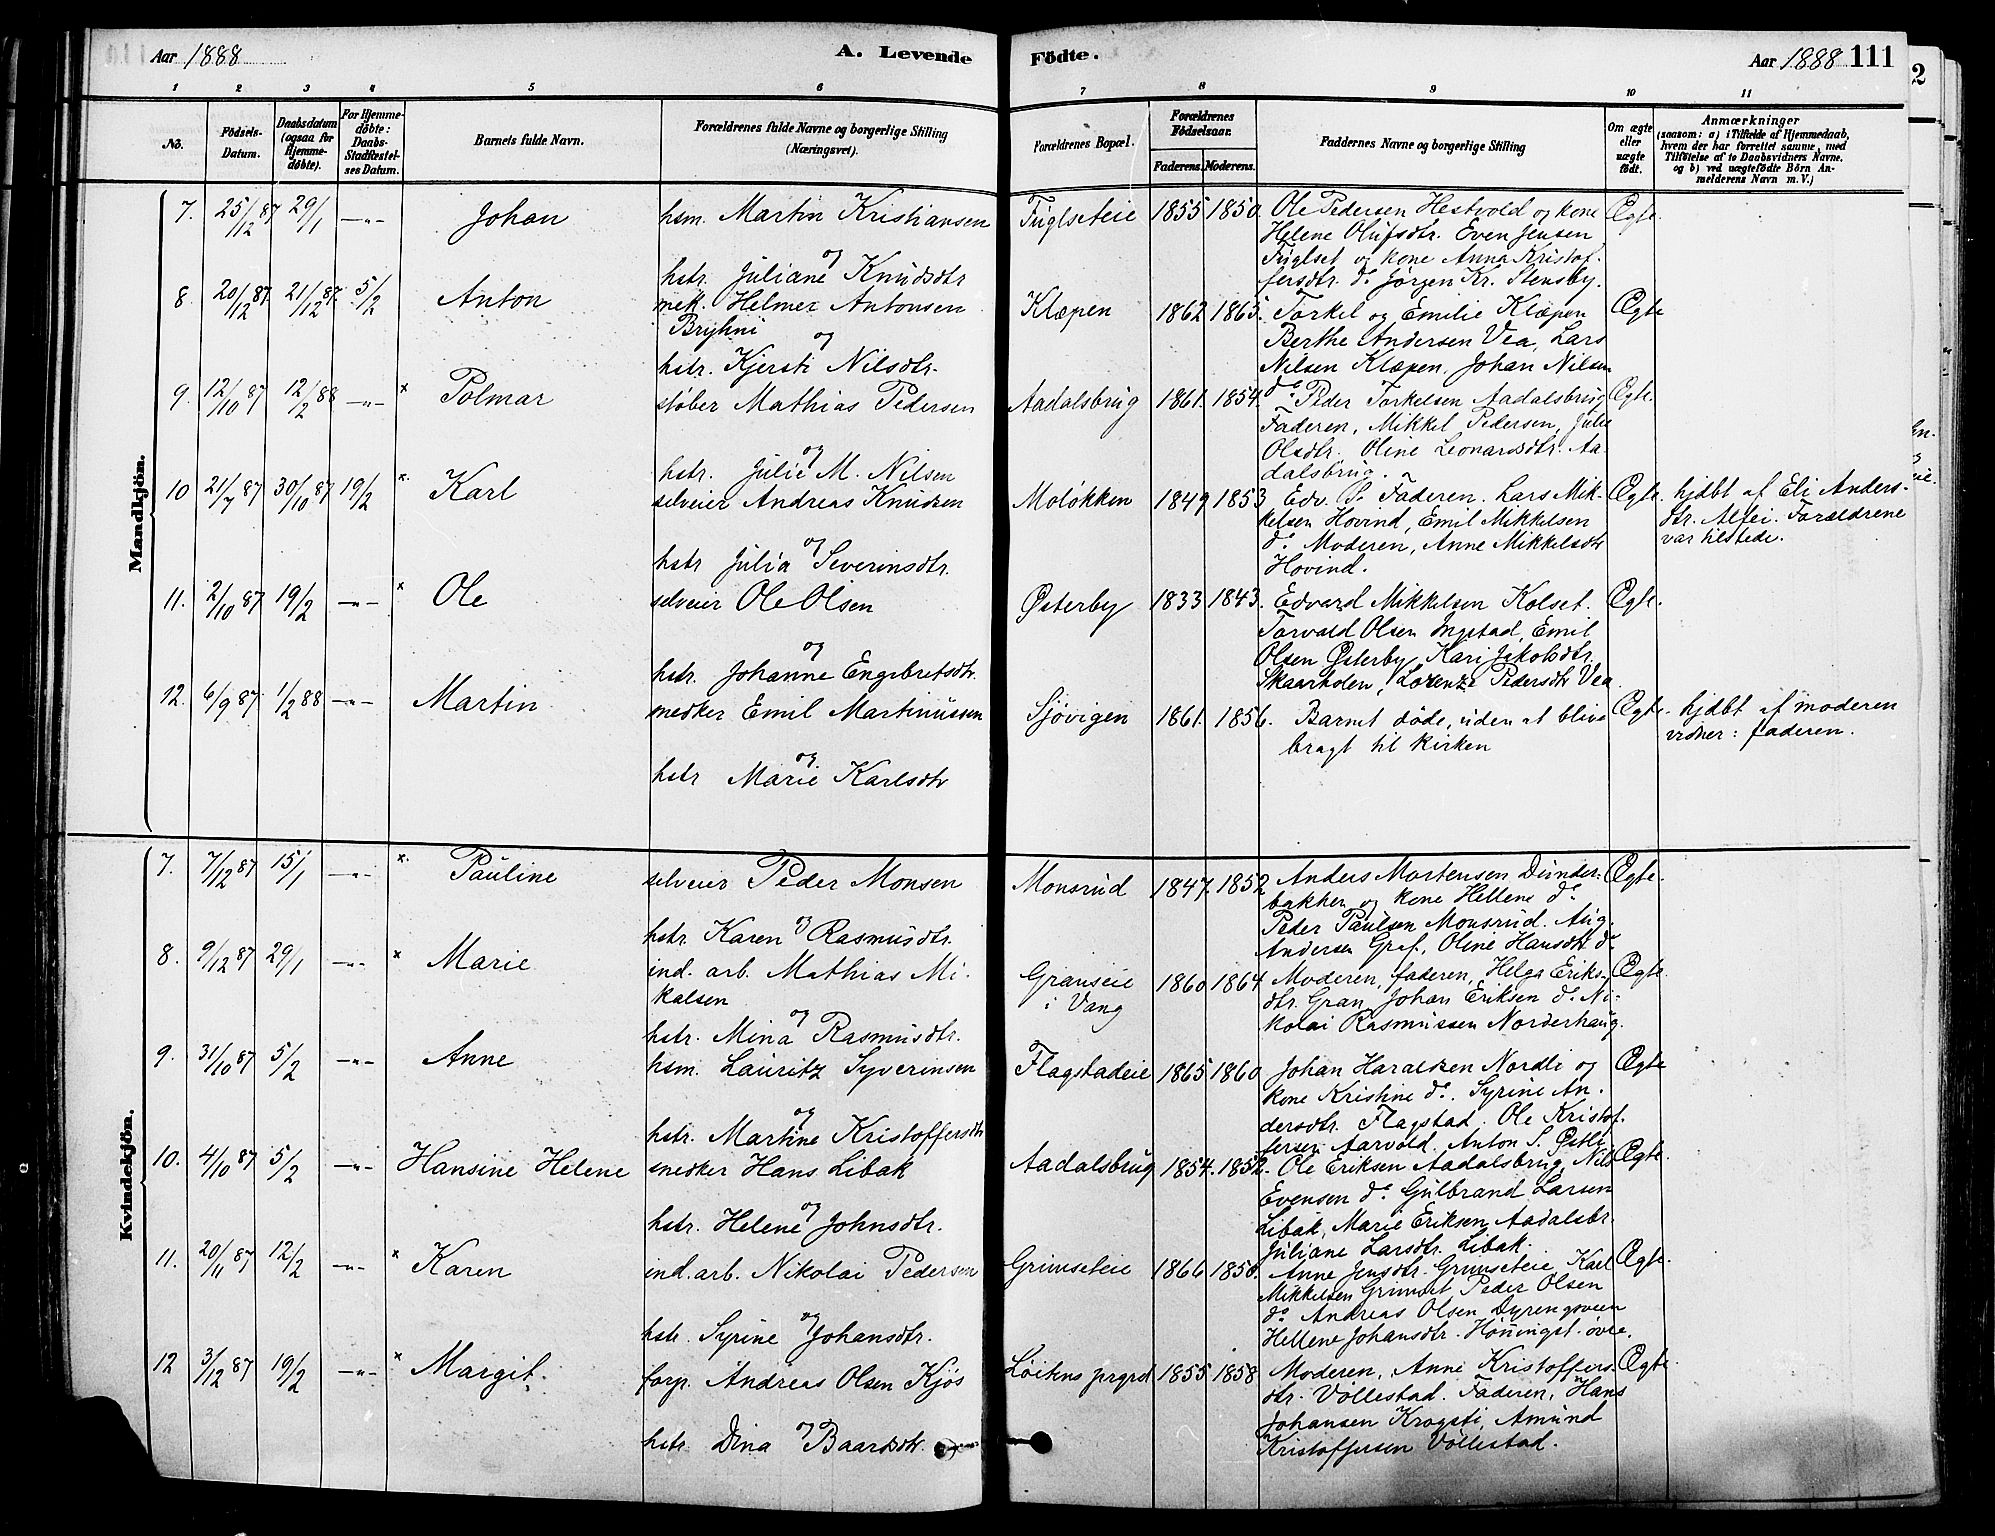 Aar 1888 A. Levende Födte. Aar 1888 111
1 2 3 4 5 6 7 8 9 10 11
No. Födsels-Datum. Daabsdatum (ogsaa for Hjemmedöbte). For Hjemmedöbte: Daabs-Stadfæstelses Datum. Barnets fulde Navn. Forældrenes fulde Navne og borgerlige Stilling (Næringsvei). Forældrenes Bopæl. Forældrenes Fødselsaar. Faderens. Moderens. Faddernes Navne og borgerlige Stilling Om ægte eller uægte födt. Anmærkninger (saasom: a) i Tilfælde af Hjemmedaab, hvem der har forrettet samme, med Tilföielse af to Daabsvidners Navne. og b) ved uægtefödte Börn Anmelderens Navn m. V.)
Mandkjön.
7. 25/12 87 29/1 -"- Johan hsm. Martin Kristiansen Fuglseteie 1855 1850. Ole Pedersen Hestvold og kone Ægte.
og Helene Olufsdtr. Even Jensen
hstr. Juliane Knudsdtr Fuglset og kone Anna Kristof-
fersdtr. do Jörgen Kr. Stensby.
8. 20/12 87. 21/12 87. 5/2 Anton mek. Helmer Antonsen Klæpen 1862 1865. Torkel og Emilie Klæpen Ægte
Bryhni og Berthe Andersen Vea, Lars
hstr. Kjersti Nilsdtr. Nilsen Klæpen, Johan Nilsen
9. 12/10 87 12/2 88 -"- x Polmar støber Mathias Pedersen Aadalsbrug 1861. 1854. do. Peder Torkelsen Aadalsbrug Ægte.
Faderen, Mikkel Pedersen, Julie
og Olsdtr. Oline Leonardsdtr. Aa-
hstr. Julie M. Nilsen dalsbrug.
10 21/7 87 30/10 87 19/2 x. Karl selveier Andreas Knudsen Moløkken 1849 1853 Edv. S. Faderen. Lars Mik- Ægte. hjdbt af Eli Anders-
kelsen Hovind, Emil Mikkelsen dtr. Alfei. Forældrene
og do Moderen, Anne Mikkelsdtr var tilstede.
hstr Julia Severinsdtr. Hovind.
11. 2/10 87 19/2 -"- x Ole selveier Ole Olsen Østerby 1833 1843. Edvard Mikkelsen Kolset. Ægte.
Torvald Olsen Ingstad, Emil
og Olsen Østerby, Kari Jakobsdtr.
hstr. Johanne Engebretsdtr. Skaarholen, Lorenze Pedersdtr Vea.
12. 6/9 87. 1/2 88 -"- Martin snedker Emil Martinussen Sjøvigen 1861. 1856. Barnet døde, uden at blive Ægte. hjdbt af moderen
bragt til kirken vidner: faderen.
og
hstr Marie Karlsdtr
Kvindekjön.
7. 7/12 87 15/1 -"- x. Pauline selveier Peder Monsen Monsrud 1847. 1852 Anders Mortensen Dunder- Ægte.
bakken og kone Hellene do
og Peder Paulsen Monsrud. Aug.
hstr. Karen Rasmusdtr. Andersen Graf, Oline Hansdtr do
8. 9/12 87 29/1 -"- x Marie ind. arb. Mathias Mi- Granseie 1860 1864 Moderen, faderen, Helga Eriks- Ægte.
kalsen i Vang dtr. Gran, Johan Eriksen do. Ni-
og kolai Rasmussen Norderhaug.
hstr. Mina Rasmusdtr.
9. 31/10 87 5/2 -"- Anne hsm. Lauritz Syverinsen Flagstadeie 1865 1860 Johan Haraldsen Nordli og Ægte
kone Kristine do. Syrine An-
og dersdtr. Flagstad. Ole Kristof-
hstr. Martine Kristoffersdtr fersen Aarvold. Anton S. Østli
10. 4/10 87 5/2 -"- Hansine Helene snedker Hans Libak Aadalsbrug 1854. 1852. Ole Eriksen Aadalsbrug, Nils Ægte.
Evensen do. Gulbrand Larsen
og Libak, Marie Eriksen Aadalsbr.
hstr. Helene Johnsdtr. Juliane Larsdtr. Libak.
11. 20/11 87 12/2 -"- x Karen ind. arb. Nikolai Pedersen Grimseteie 1866 1850. Anne Jensdtr. Grimseteie Karl Ægte.
Mikkelsen Grimset Peder Olsen
og do Andreas Olsen Dyrengsveen
hstr. Syrine Johansdtr. Hellene Johansdtr. Hönningst. øvre.
12 3/12 87 19/2 -"- x Margit. forp. Andreas Olsen Kjøs Løitens prgrd 1855 1858 Moderen, Anne Kristoffers- Ægte.
dtr. Vollestad. Faderen, Hans
og Johansen Krogsti, Amund
hstr. Dina Baardsdtr. Kristoffersen Vollestad.